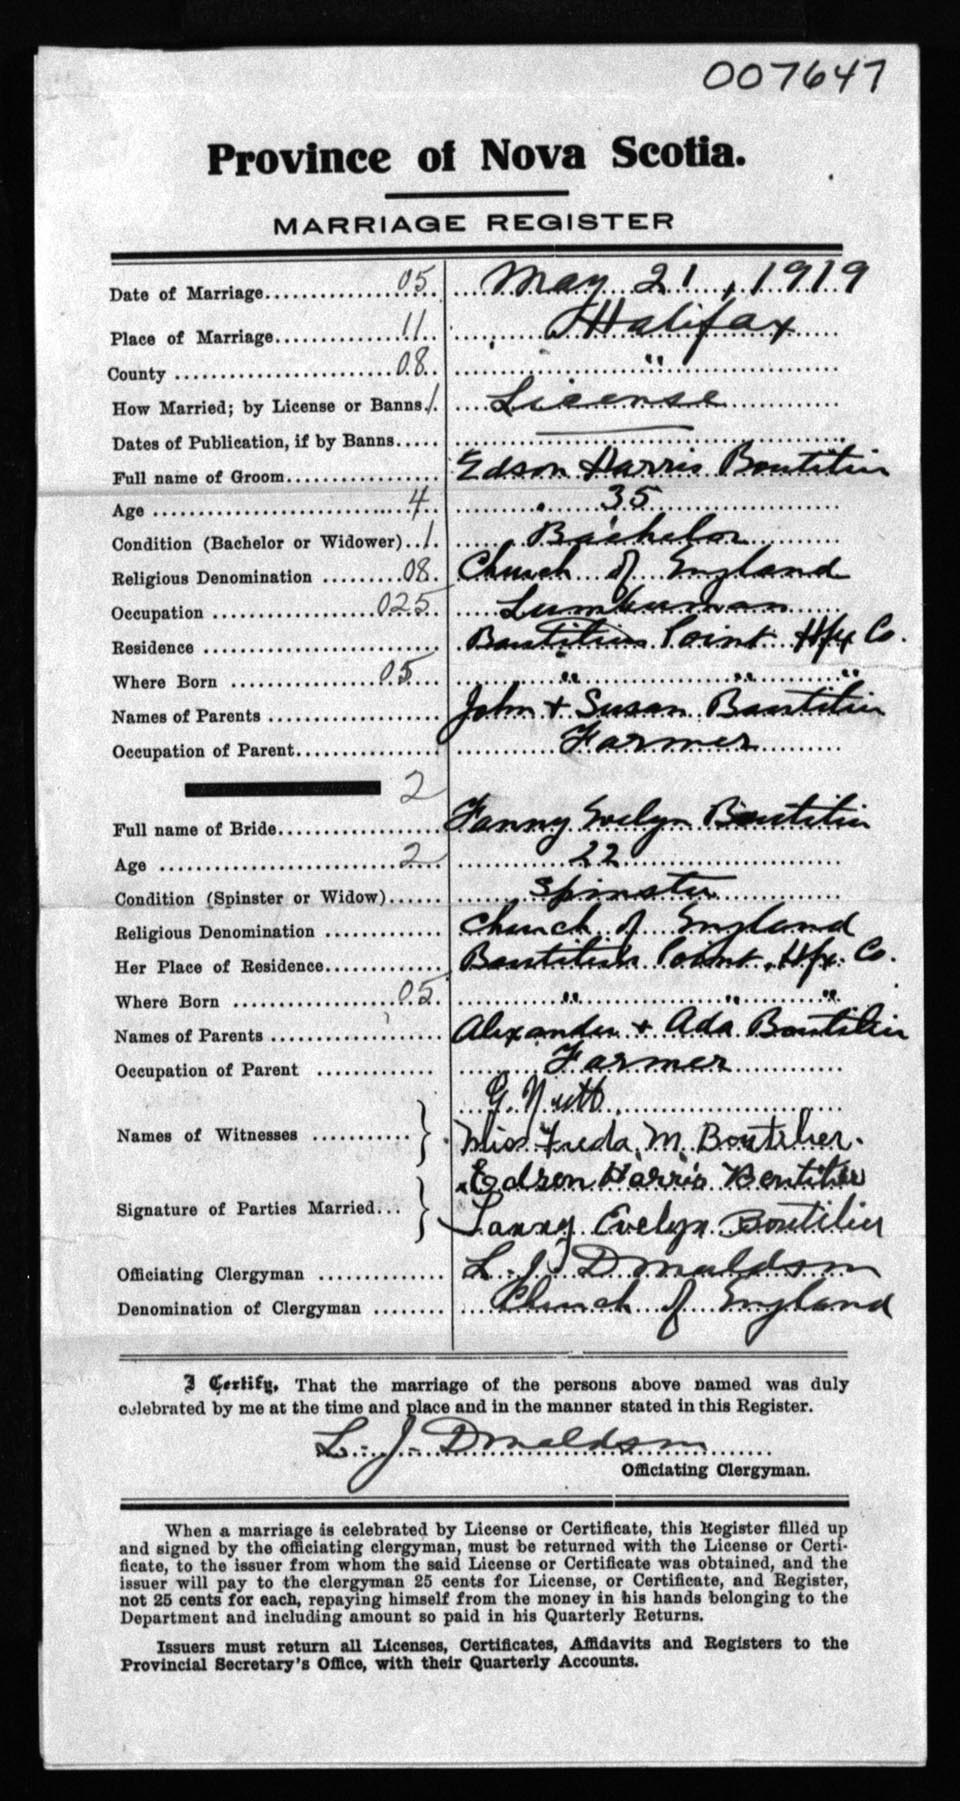 007647
Province of Nova Scotia.
MARRIAGE REGISTER
Date of Marriage 05 May 21, 1919
Place of Marriage 11 Halifax
County 08 "
How Married; by License or Banns 1 License
Dates of Publication, if by Banns
Full name of Groom Edson Harris Boutilier
Age 4 35
Condition (Bachelor or Widower) 1 Bachelor
Religious Denomination 08 Church of England
Occupation 025 Lumberman
Residence Boutiliers Point Hfx Co.
Where Born 05 " " "
Names of Parents John + Susan Boutilier
Occupation of Parent Farmer
2
Full name of Bride Fanny Evelyn Boutilier
Age 2 22
Condition (Spinster or Widow) Spinster
Religious Denomination Church of England
Her Place of Residence Boutiliers Point, Hfx. Co.
Where Born 05 " " "
Names of Parents Alexander + Ada Boutilier
Occupation of Parent Farmer
G.
Names of Witnesses } Miss Freda M. Boutilier.
Edson Harris Boutilier
Signature of Parties Married } Fanny Evelyn Boutilier
Officiating Clergyman L. J. Donaldson
Denomination of Clergyman Church of England
I Certify, That the marriage of the persons above named was duly
celebrated by me at the time and place and in the manner stated in this Register.
L. J. Donaldson
Officiating Clergyman.
When a marriage is celebrated by License or Certificate, this Register filled up
and signed by the officiating clergyman, must be returned with the License or Certi-
ficate, to the issuer from whom the said License or Certificate was obtained, and the
issuer will pay to the clergyman 25 cents for License, or Certificate, and Register,
not 25 cents for each, repaying himself from the money in his hands belonging to the
Department and including amount so paid in his Quarterly Returns.
Issuers must return all Licenses, Certificates, Affidavits and Registers to the
Provincial Secretary's Office, with their Quarterly Accounts.